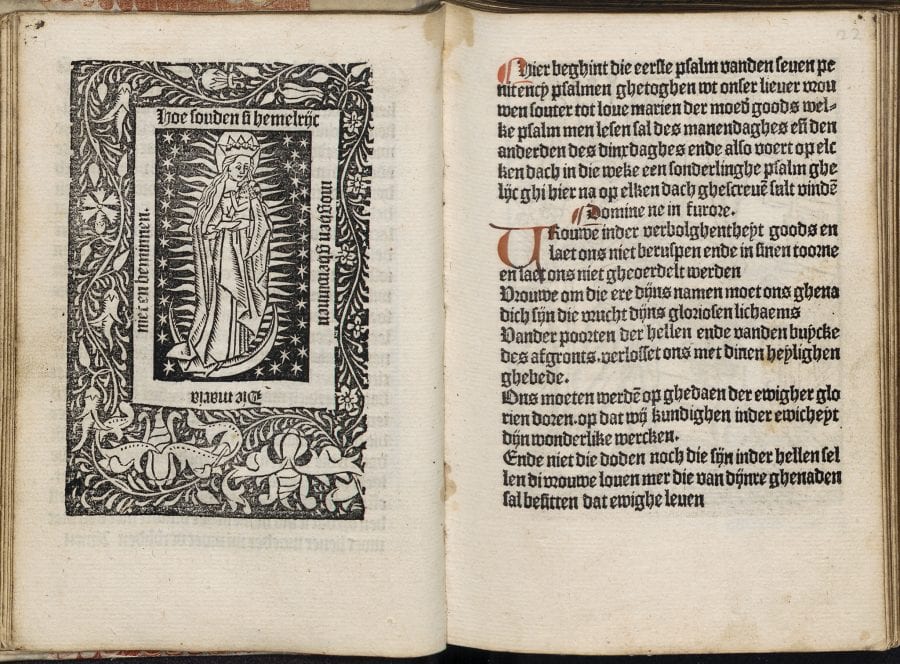 Hoe souden si hemelrijc
moghen ghewinnen
Die maria
niet en beminnen.
22
Hier beghint die eerste psalm vanden seuen pe
nitencẏ psalmen ghetoghen wt onser lieuer vrou
wen souter tot loue marien der moed̄ goods wel⸗
ke psalm men lesen sal des manendaghes en̄ den
anderden des dinxdaghes ende also voert op elc
ken dach in die weke een sonderlinghe psalm ghe
lijc ghi hier na op elken dach ghescreuē sult vindē
Domine ne in furore.
VRouwe inder verbolghentheyt goods en
laet ons niet beruspen ende in sinen toorne
en laet ons niet gheoerdelt werden
Vrouwe om die ere dijns namen moet ons ghena
dich sijn die vrucht dijns gloriosen lichaems
Vander poorten der hellen ende vanden buycke
des afgronts.verlosset ons met dinen heylighen
ghebede.
Ons moeten werdē op ghedaen der ewigher glo
rien doren.op dat wij kundighen inder ewicheyt
dijn wonderlike wercken.
Ende niet die doden noch die sijn inder hellen sel
len di vrouwe louen mer die van dijnre ghenaden
sal besitten dat ewighe leuen